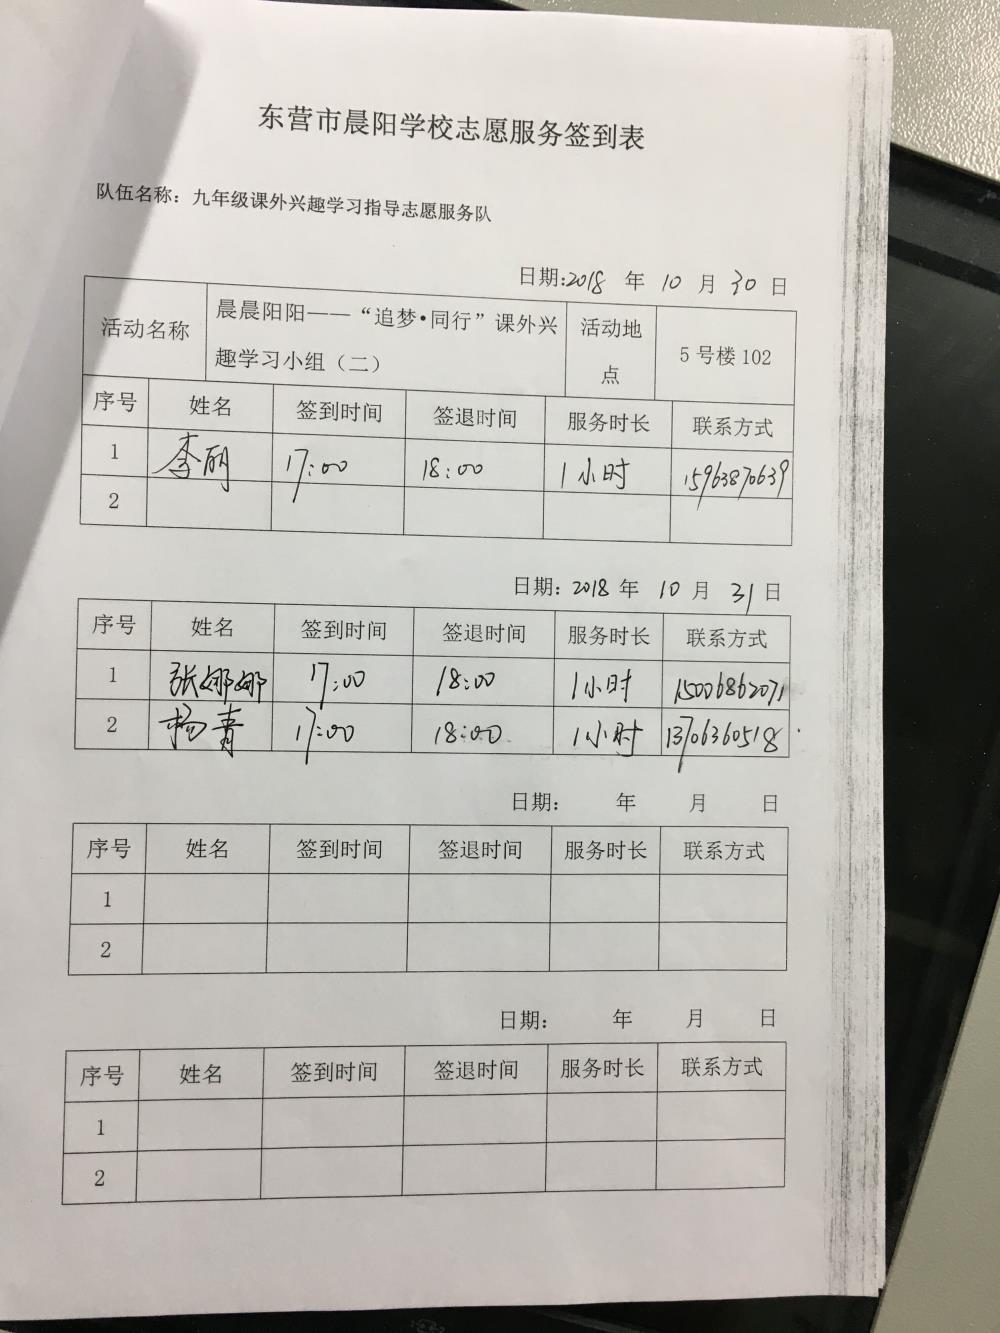 东营市晨阳学校志愿服务签到表
队伍名称：九年级课外兴趣学习指导志愿服务队
日期:2018 年 10 月 30 日
活动名称 晨晨阳阳——“追梦•同行”课外兴趣学习小组（二） 活动地点 5 号楼 102
序号 姓名 签到时间 签退时间 服务时长 联系方式
1 李丽 17:00 18:00 1小时 15963870639
2
日期: 2018 年 10 月 31 日
序号 姓名 签到时间 签退时间 服务时长 联系方式
1 张娜娜 17:00 18:00 1小时 15006862071
2 杨青 17:00 18:00 1小时 13706360518
日期: 年 月 日
序号 姓名 签到时间 签退时间 服务时长 联系方式
1
2
日期: 年 月 日
序号 姓名 签到时间 签退时间 服务时长 联系方式
1
2